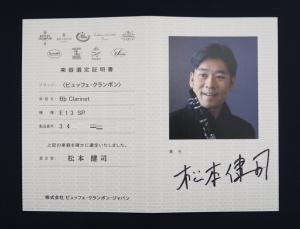 楽器選定証明書
ブランド： 〈ビュッフェ・クランポン〉
楽器名： Bb Clarinet
機種： E13 SP
製造番号： 34
上記の楽器を確かに選定いたしました。
選定者： 松本 健司
株式会社 ビュッフェ・クランポン・ジャパン
署名
松本健司